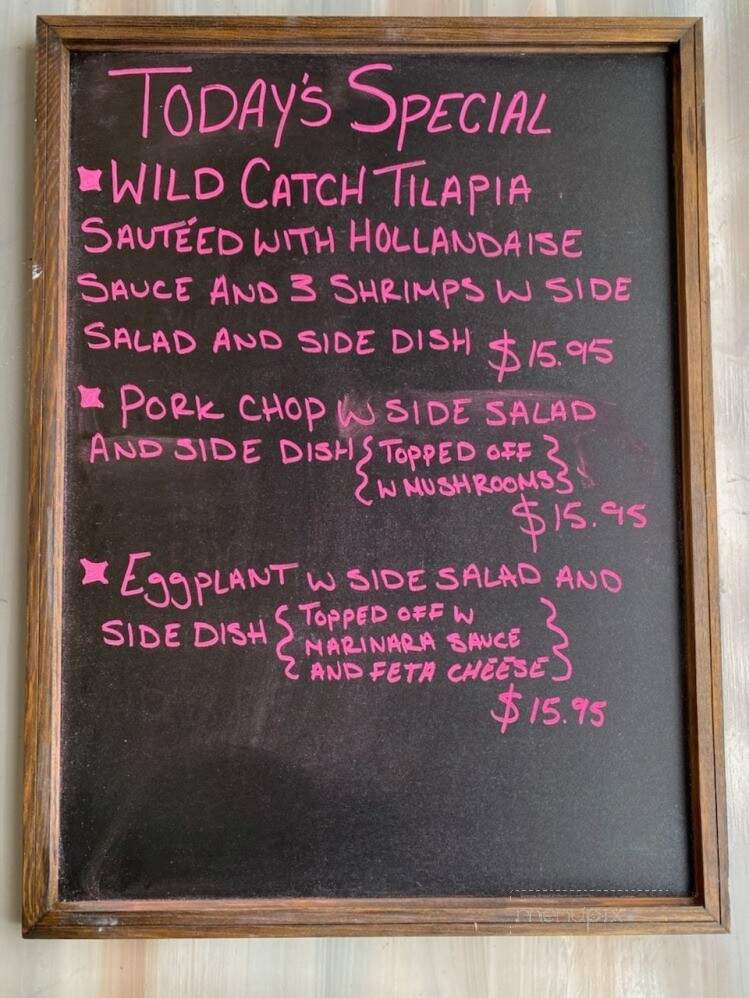 TODAY'S SPECIAL
WILD CATCH TILAPIA
SAUTÉED WITH HOLLANDAISE
SAUCE AND 3 SHRIMPS W SIDE
SALAD AND SIDE DISH $15.95
PORK CHOP W SIDE SALAD
AND SIDE DISH {TOPPED OFF
W MUSHROOMS}
$15.95
EggPLANT W SIDE SALAD AND
SIDE DISH {TOPPED OFF W
MARINARA SAUCE
AND FETA CHEESE}
$15.95
menupix